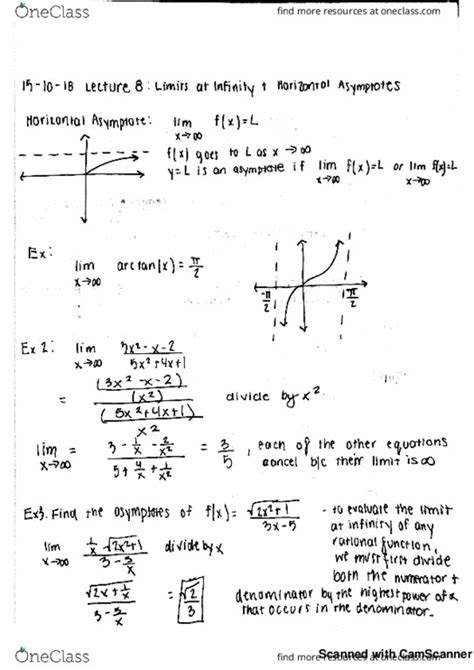 OneClass
find more resources at oneclass.com
15-10-18 Lecture 8: Limits at Infinity + Horizontal Asymptotes
Horizontal Asymptote: lim x→∞ f(x)=L
f(x) goes to L as x → ∞
y=L is an asymptote if lim x→∞ f(x)=L or lim x→∞ f(x)=L
Ex:
lim x→∞ arctan(x) = π/2
-π/2
π/2
Ex 2: lim x→∞ 3x²-x-2 / 5x²+4x+1
= (3x²-x-2) / (x²) / (5x²+4x+1) / x² divide by x²
lim x→∞ = 3 - 1/x - 2/x² / 5 + 4/x + 1/x² = 3/5, each of the other equations
cancel b/c their limit is ∞
Ex3. Find the asymptotes of f(x) = √2x²+1 / 3x-5
- to evaluate the limit
at infinity of any
rational function,
we must first divide
both the numerator +
denominator by the highest power of x
that occurs in the denominator.
lim x→∞ 1/x √2x²+1 / 3 - 5/x divide by x
√2x + 1/x / 3 - 5/x = √2/3
Scanned with CamScanner
OneClass
find more resources at oneclass.com